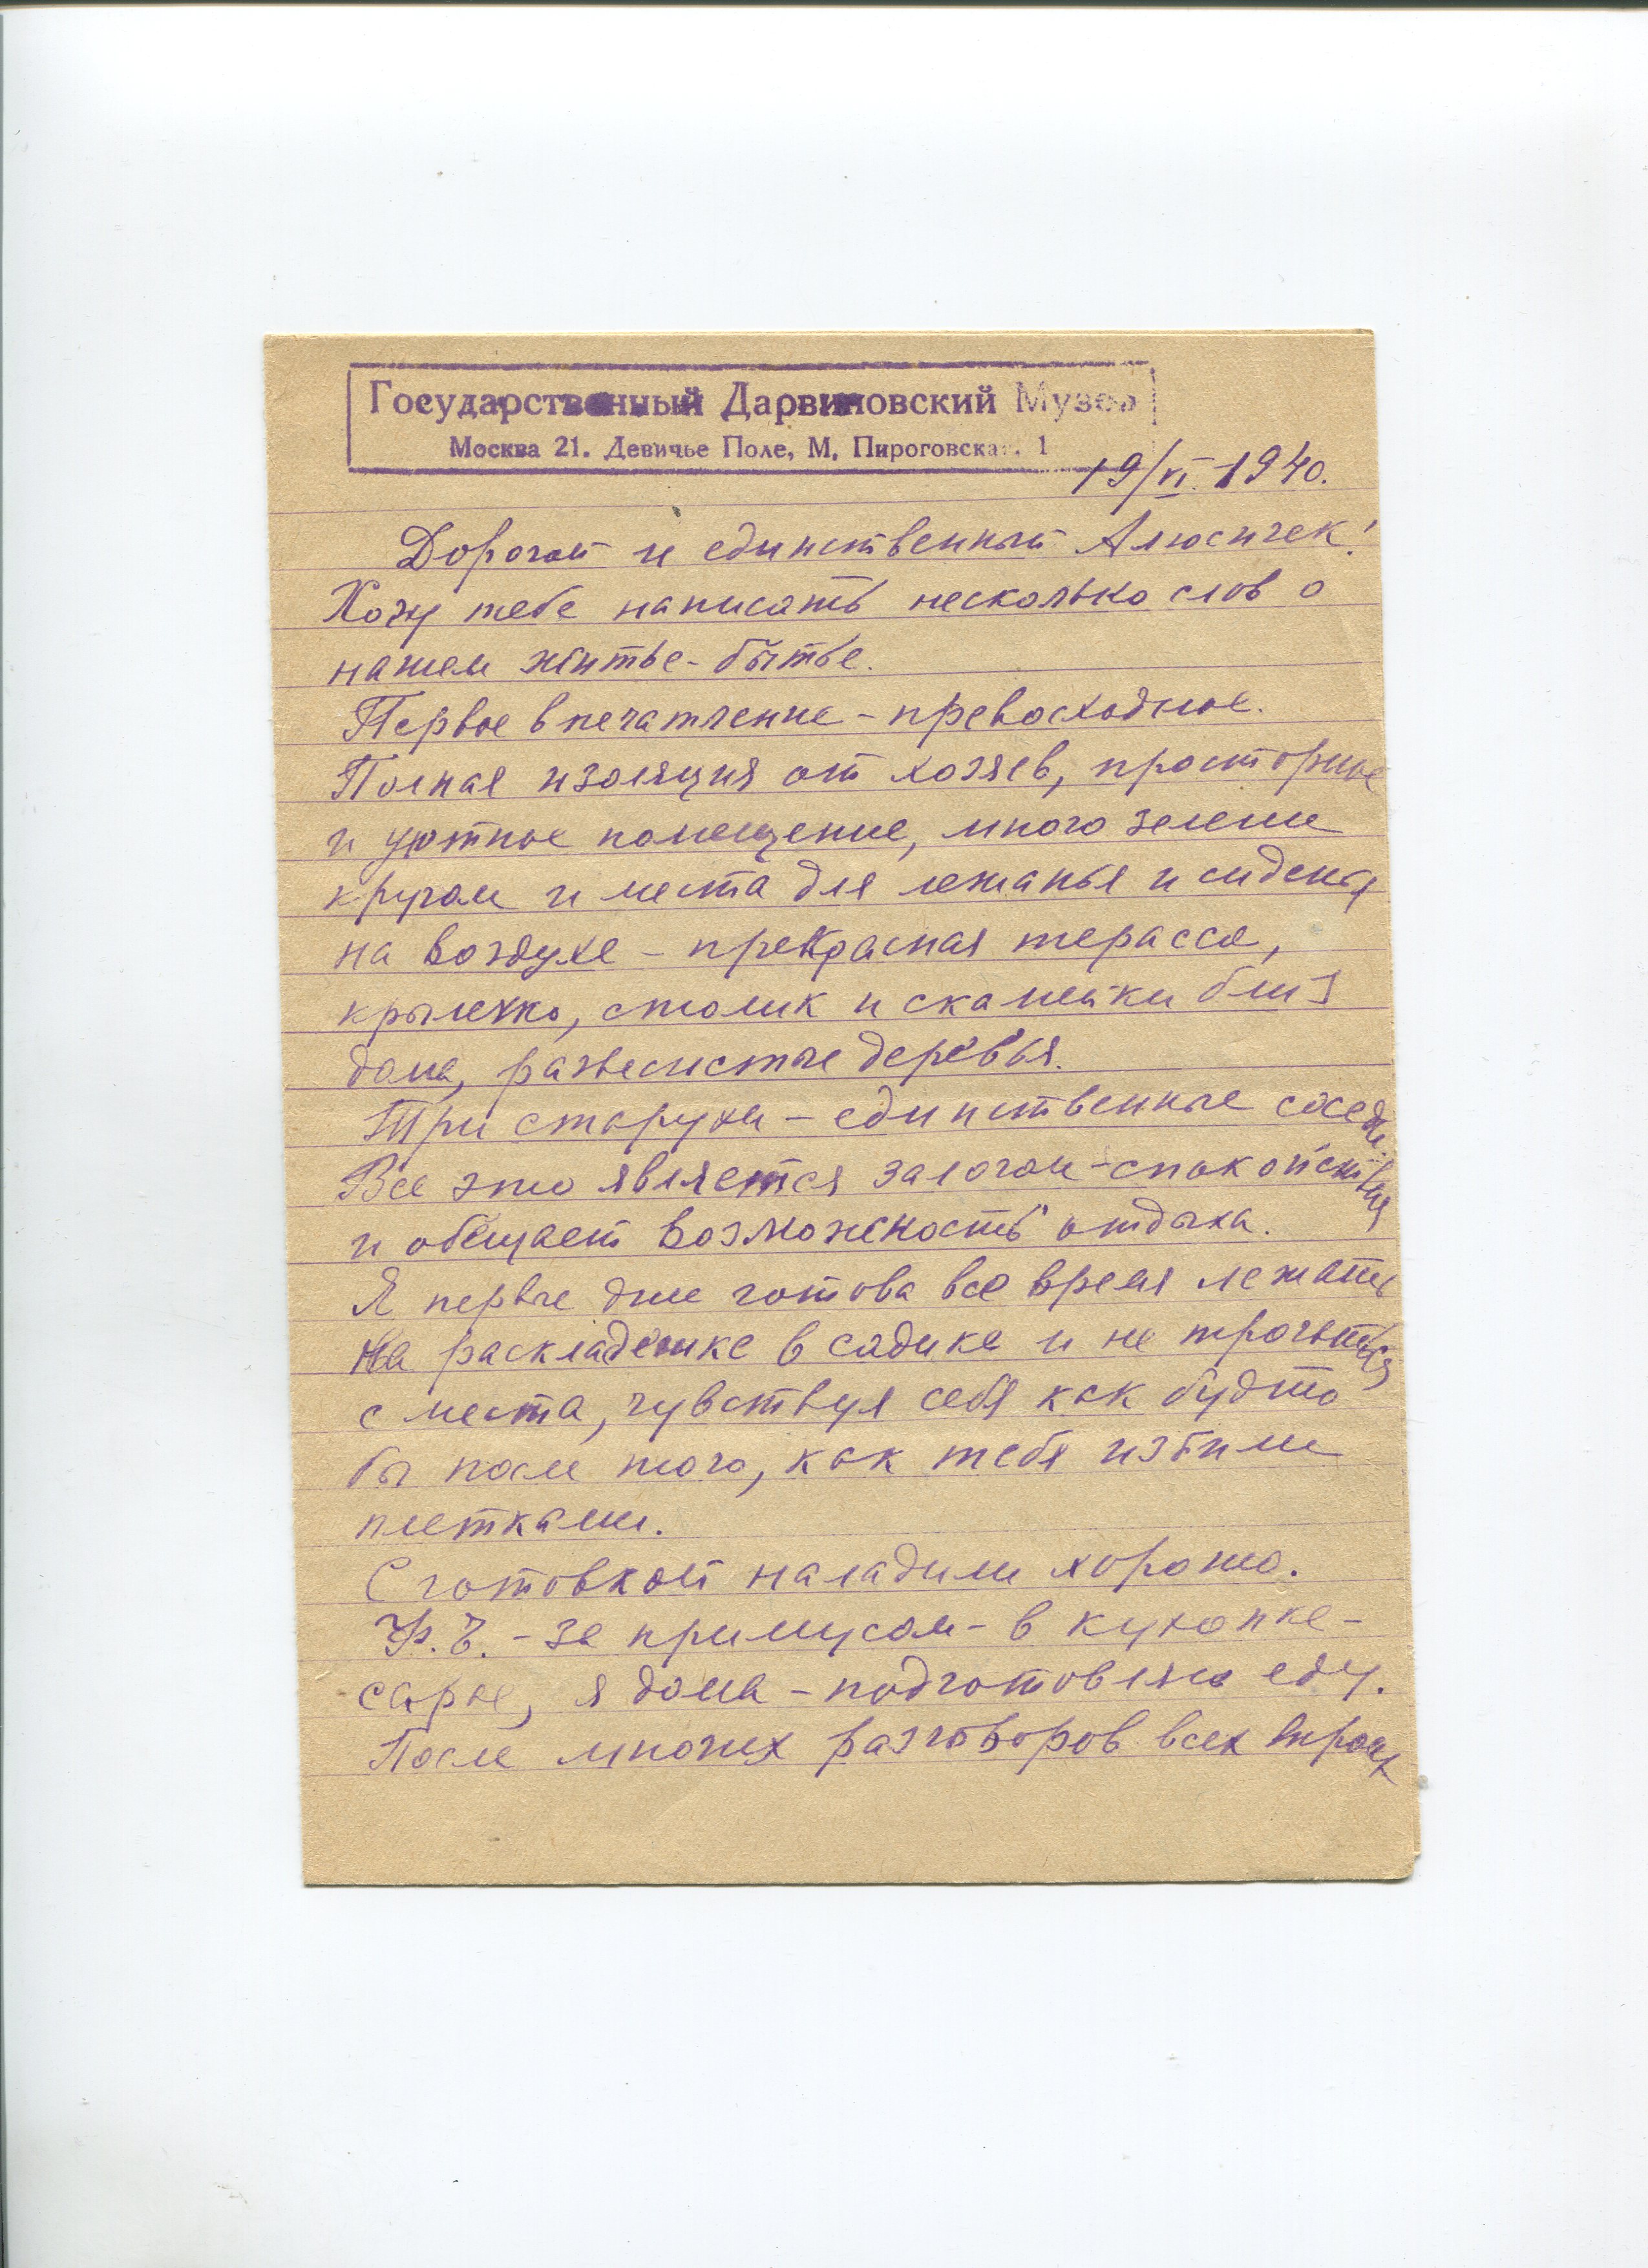 Государственный Дарвиновский Музей
Москва 21. Девичье Поле, М. Пироговская, 1
19/VI 1940.
Дорогой и единственный Алюсичек!
Хочу тебе написать несколько слов о
нашем житье-бытье.
Первое впечатление – превосходное.
Полная изоляция от хозяев, просторное
и уютное помещение, много зелени
кругом и места для лежанья и сиденья
на воздухе – прекрасная терасса,
крылечко, столик и скамейки близ
дома, развесистые деревья.
Три старухи – единственные соседи.
Все это является залогом – спокойствия
и обещает возможность отдыха.
Я первые дни готова все время лежать
на раскладушке в садике и не трогаться
с места, чувствуя себя как будто
бы после того, как тебя избили
плетками.
С готовкой наладили хорошо.
– за примусом – в кухоньке-
сарае, я дома – подготовляю еду.
После многих разговоров всех троих